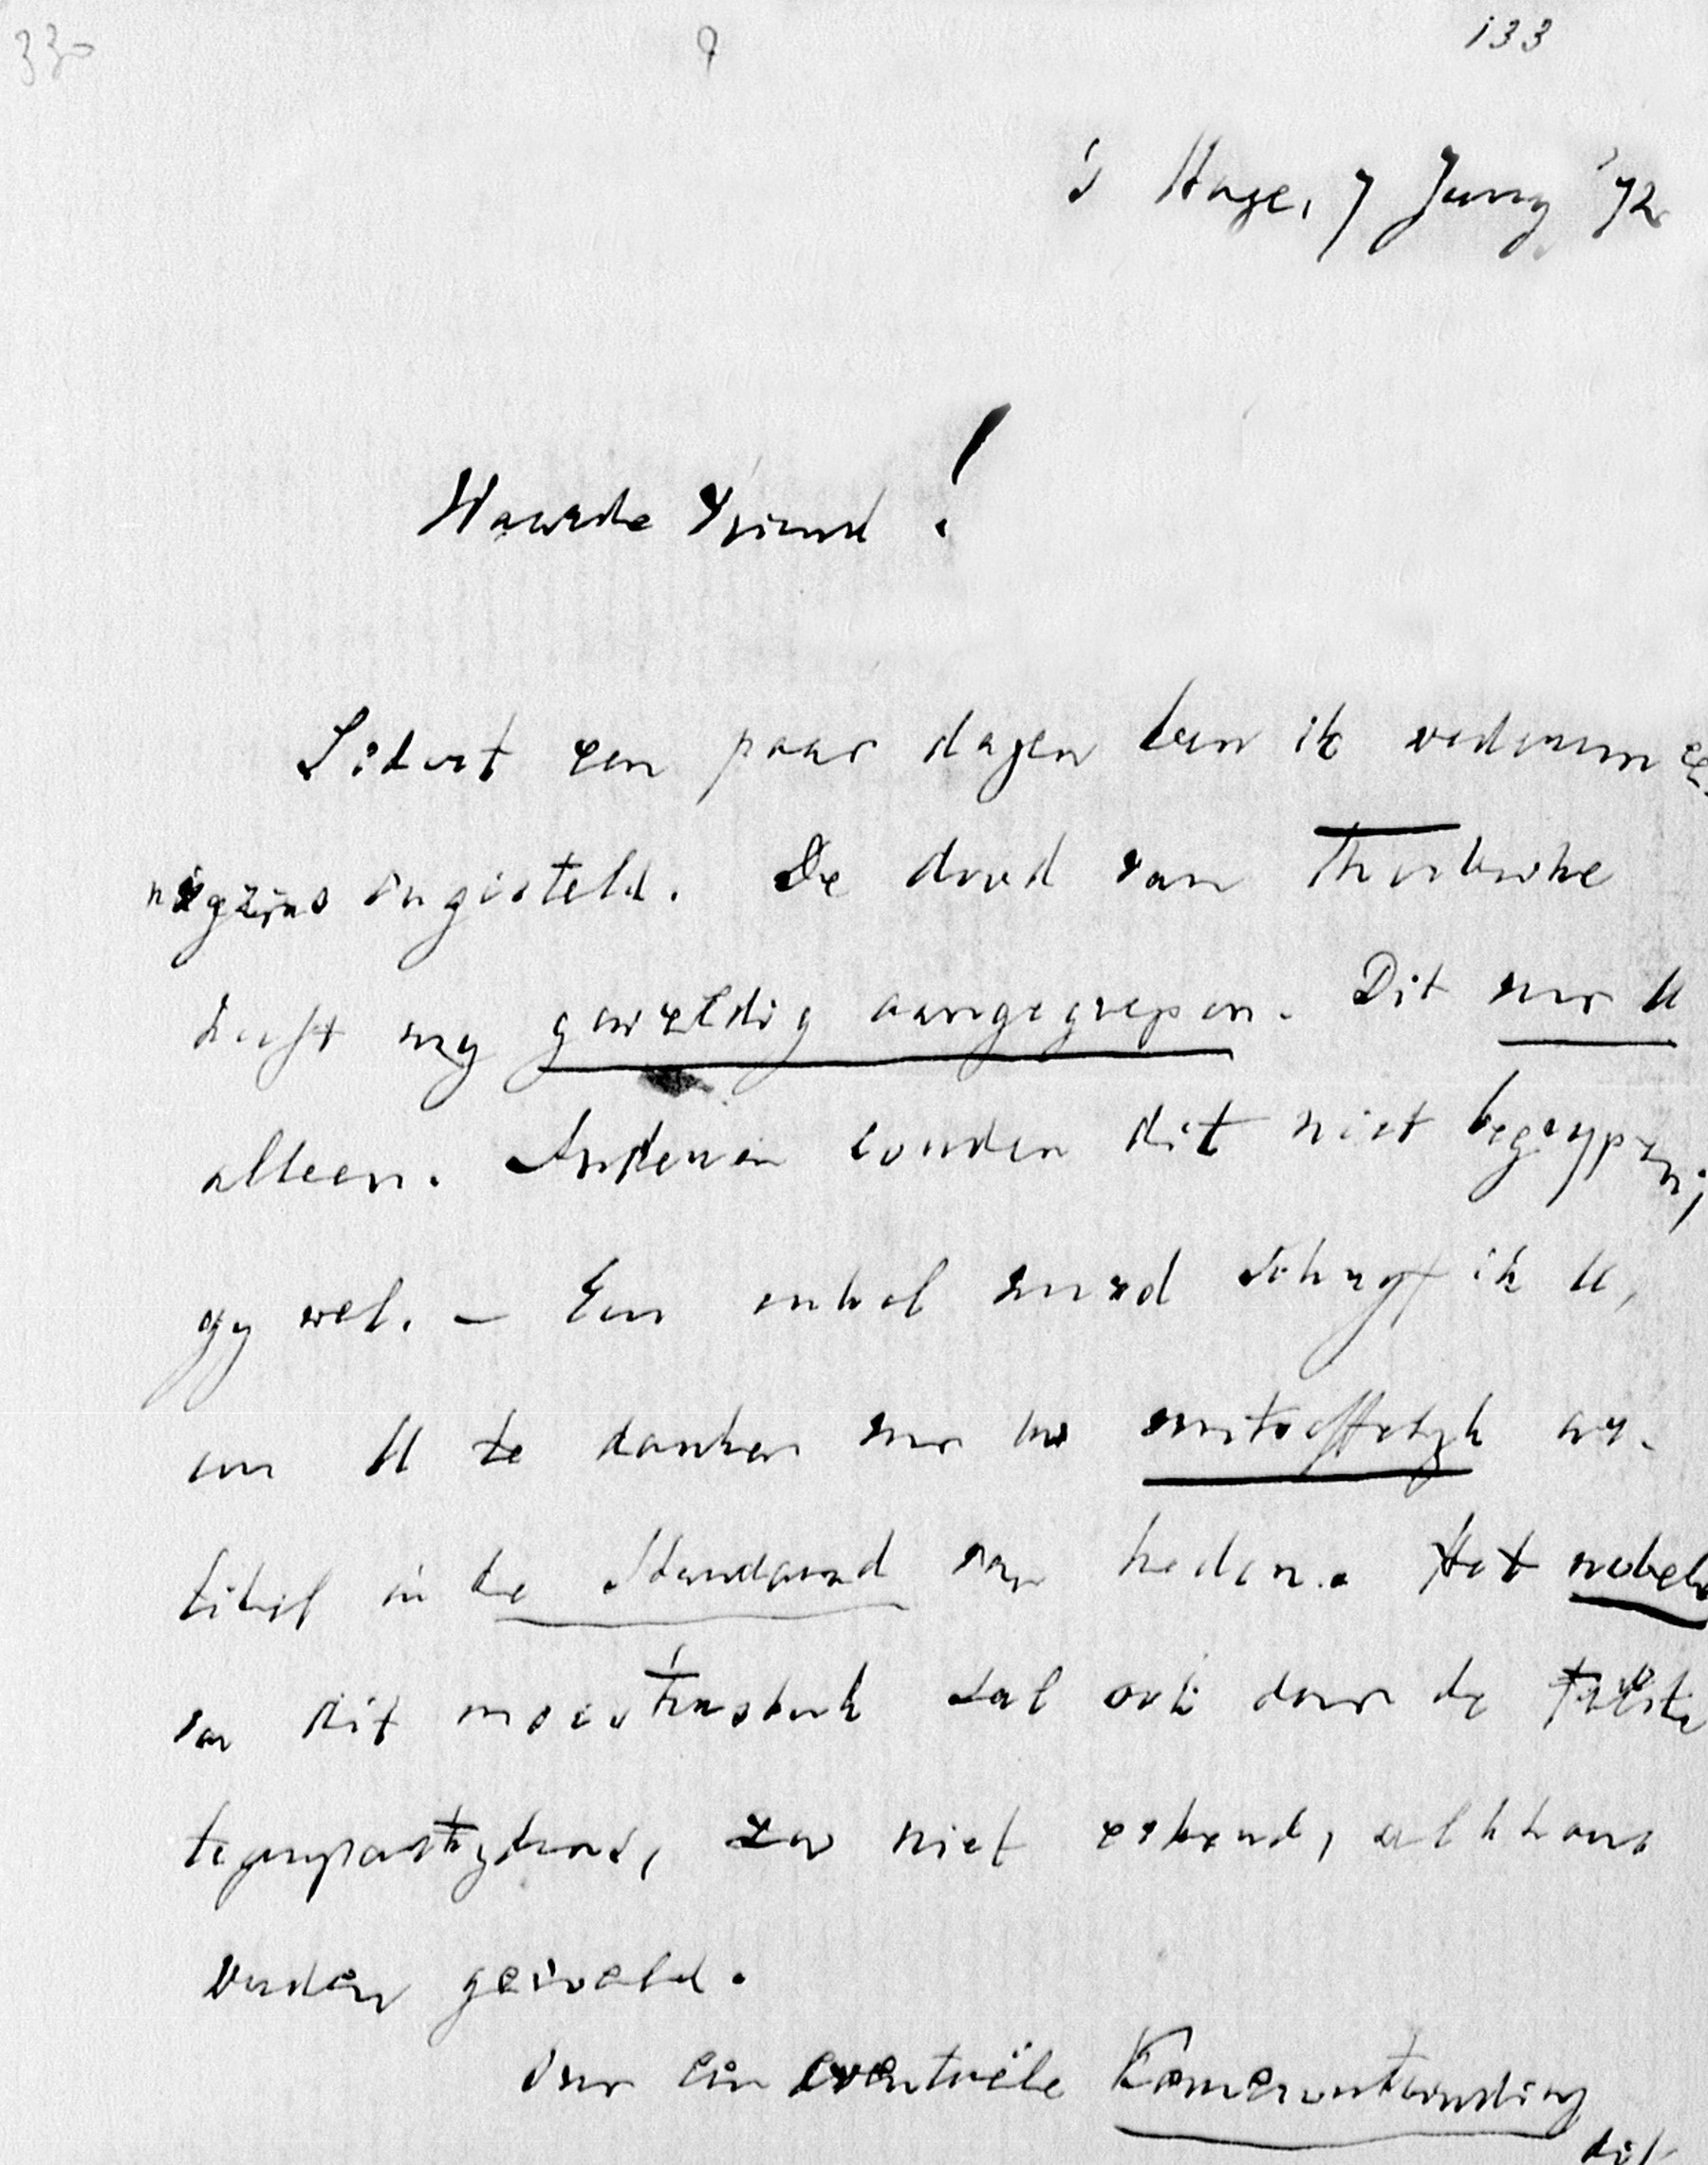 330 9 133
's Hage, 7 Juny '72
Waarde Vriend!
Sedert een paar dagen ben ik wederom ee-
nigzins ongesteld. De dood van Thorbecke
heeft my geweldig aangegrepen. Dit voor U
alleen. Anderen zouden dit niet begrypen;
gy wel. – Een enkel woord schryf ik U,
om U te danken voor uw voortreffelyk ar-
tikel in de Standaard van heden. Het nobele
van dit meesterstuk zal ook door de felste
tegenpartyders, zoo niet erkend, althans
worden gevoeld.
Over een eventuële Kamerontbinding